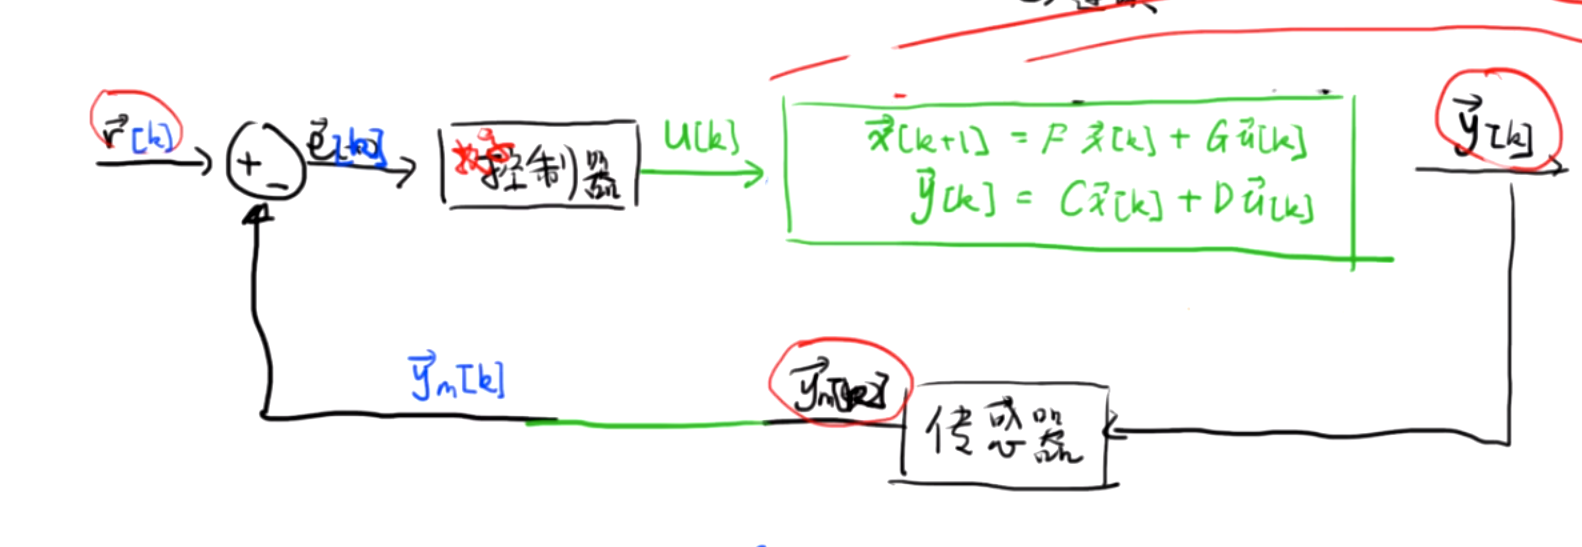 r⃗[k]
+
−
e⃗[k]
控制器
u[k]
x⃗[k+1] = F x⃗[k] + G u⃗[k]
y⃗[k] = C x⃗[k] + D u⃗[k]
y⃗[k]
y⃗m[k]
y⃗m[k]
传感器